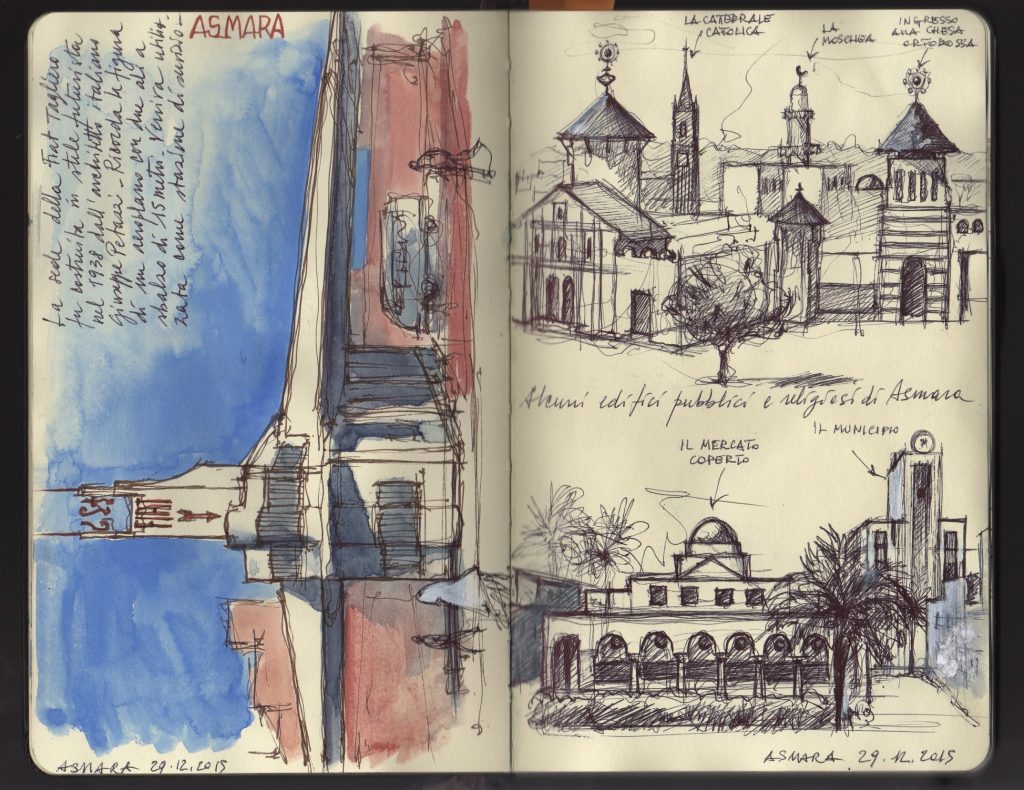 ASMARA
La sede della Fiat Tagliero
fu costruita in stile futurista
nel 1938 dall'architetto italiano
Giuseppe Petazzi - Ricorda la figura
di un aeroplano con due ali a
sbalzo di 15 metri. Veniva utiliz-
zata come stazione di servizio -
FIAT
ASMARA 29.12.2015
LA CATEDRALE
CATOLICA
LA
MOSCHEA
INGRESSO
ALLA CHIESA
ORTODOSSA
Alcuni edifici pubblici e religiosi di Asmara
IL MERCATO
COPERTO
IL MUNICIPIO
ASMARA 29.12.2015